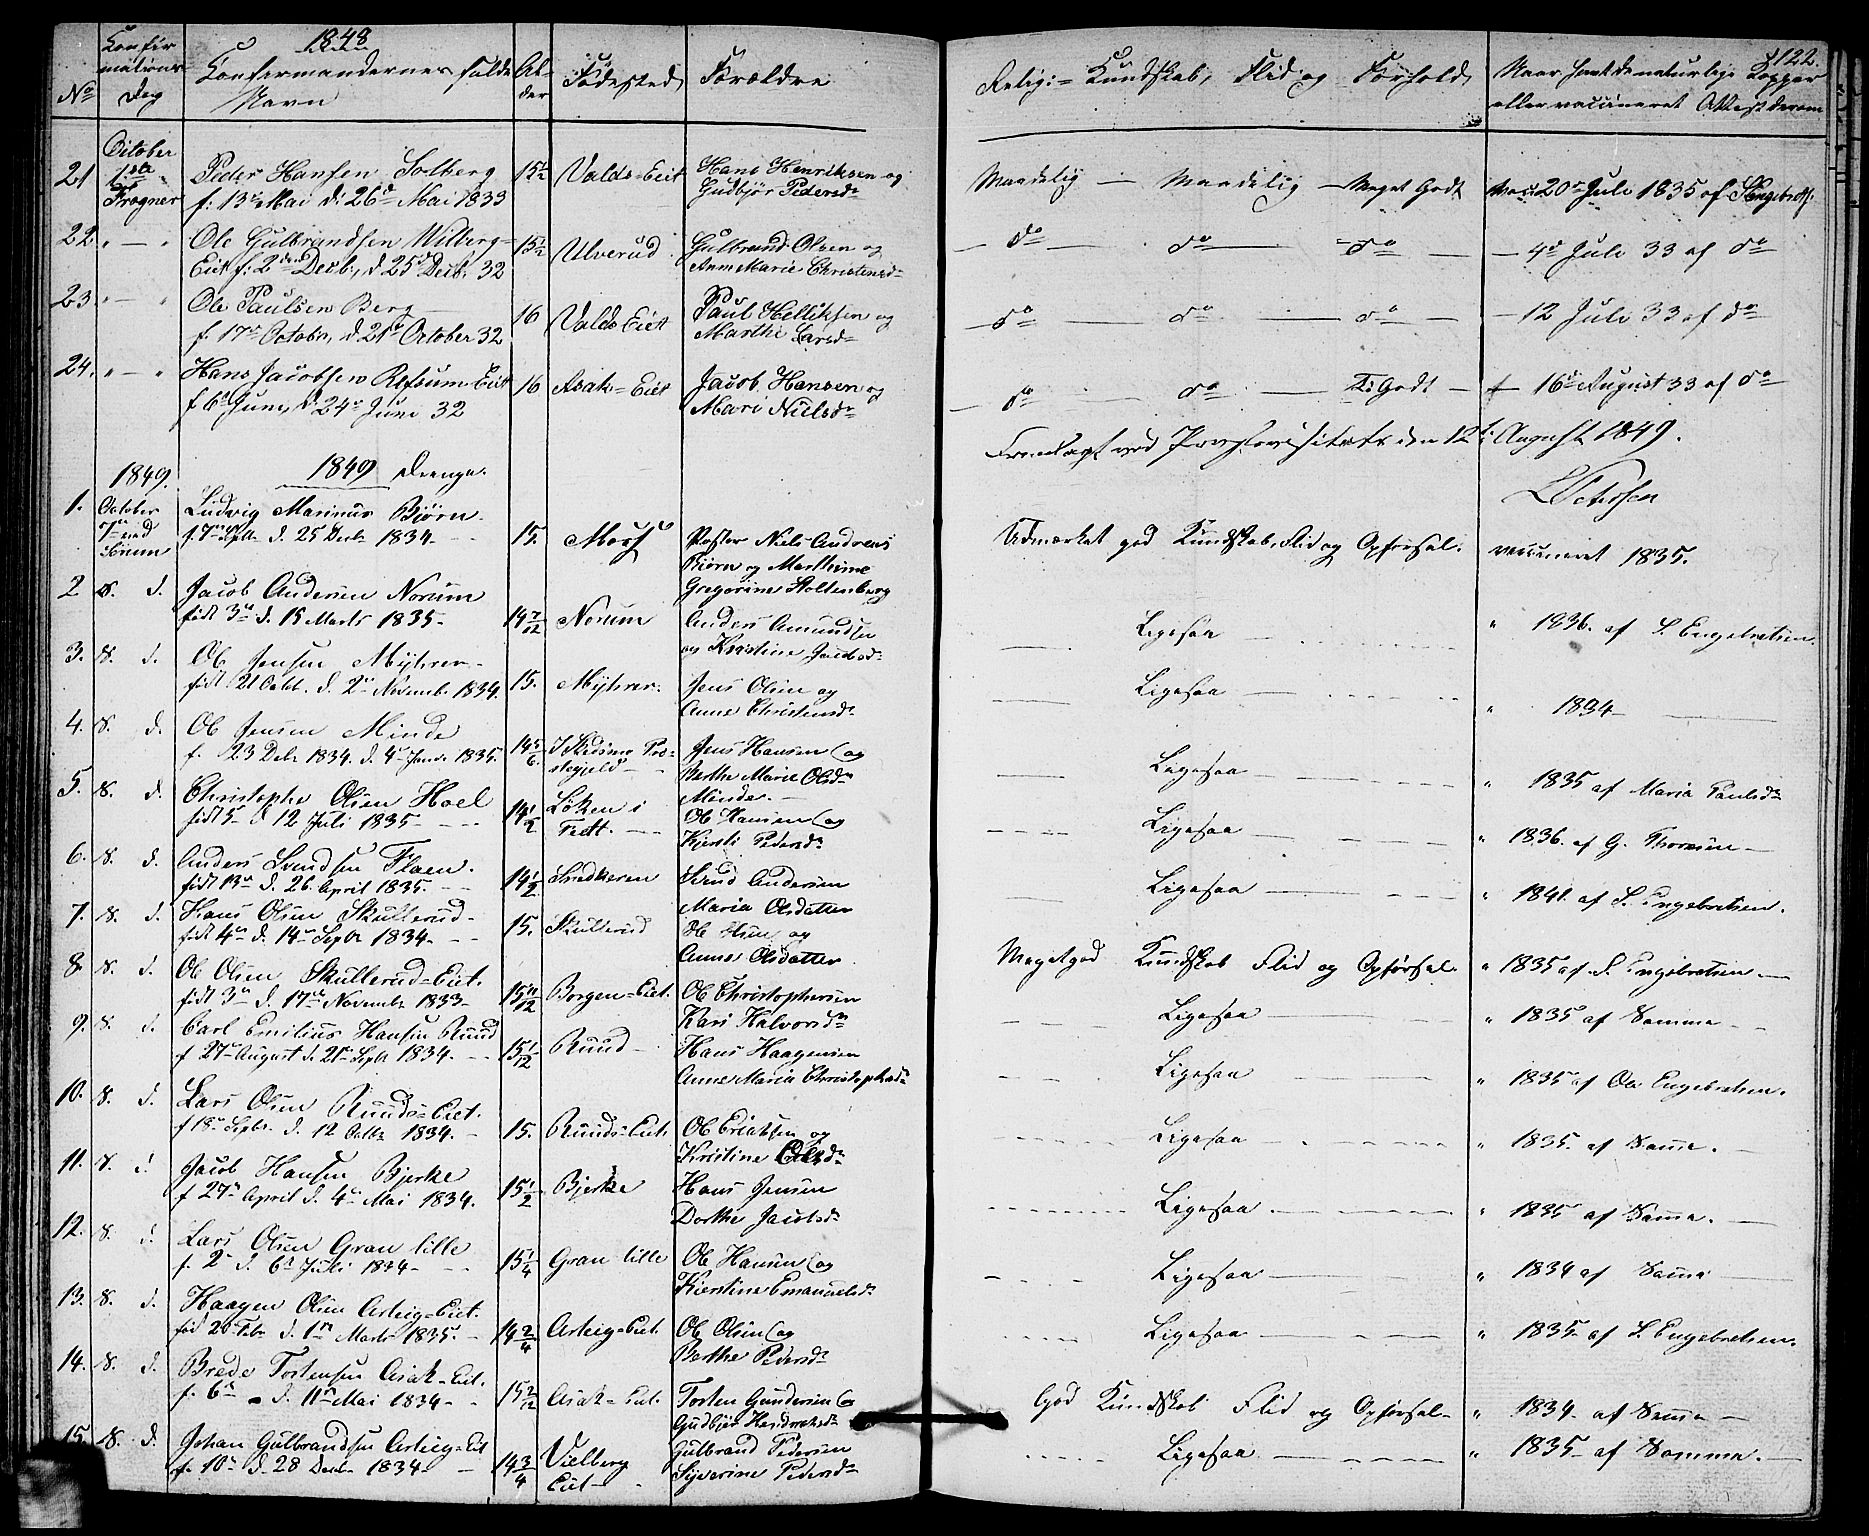 1848
122.
No
Confir
mations
Dag
Confirmandernes fulde
Navn
Al-
der
Fødested,
Forældre
Religi= Kundskab, Flid og Forhold,
Naar havt de naturlige Kopper
eller vaccineret Attest derom
21 October 1ste Frogner
Peder Hansen Solberg
f: 13de Mai d: 26de Mai 1833
15½
Valds=Eiet
Hans Henriksen og
Gudbjør Pedersdr
Maadelig — Maadelig — Meget Godt
vacc 20de Juli 1835 af S Engebretsen
22 " — "
Ole Gulbrandsen Wilberg=
Eiet f: 2den Decb:, d 25de Decb. 32
15½
Ulverud
Gulbrand Olsen og
Anne Marie Christensd
— do — do — do —
— 4de Juli 33 af do
23 " — "
Ole Paulsen Berg
f. 17de Octobr, d 21de October 32
16
Valds Eiet
Paul Hellik­sen og
Marthe Larsd
— do — do — do —
— 12 Juli 33 af do
24. " — "
Hans Jacobsen Refsum Eiet
f 6te Juni, d: 24de Juni 32
16
Asak=Eiet
Jacob Hansen og
Mari Nielsdr
— do do Godt —
— 16de August 33 af do
Fremlagt ved Provstevisitats den 12te August 1849.
1849.
1849 Drenge.
1. October 7de ved Sørum
Ludvig Marinus Bjørn.
f. 7de Septbr d. 25 Decbr 1834.
15.
Pastor Niels Andreas
Biørn og Marthine
Gregorine Stoltenberg
Udmærket god Kundskab, Flid og Opførsel.
vaccineret 1835.
2 s. d.
Jacob Andersen Norum
født 3de d. 15 Marts 1835.
14 7/12
Norum
Anders Amundsen
og Kirstine Jacobsd
Ligesaa
" 1836. af S. Engebretsen.
3. s. d.
Ole Jensen Myhrer
født 21 Octbr. d. 2de Novemb. 1834.
15.
Myhrer.
Jens Olsen og
Anne Christensdr
Ligesaa
" 1834
4. s. d.
Ole Jensen Minde
f. 23 Debr 1834. d. 4de Janr 1835.
14 5/6
I Skedsmo Præ-
stegjeld
Jens Hansen og
Berthe Marie Olsdr
Minde.
Ligesaa
" 1835 af Maria Paulsdr
5. s. d.
Christopher Olsen Hoel
født 5 d 12 Juli 1835
14½
Løken i
Fedt.
Ole Hansen og
Kjersti Pedersdr
Ligesaa
" 1836. af G. Thoresen
6. s. d.
Anders Svendsen Floen.
født 13de d. 26 April 1835.
14½
Snedkeren
Svend Andersen
Maria Olsdatter
Ligesaa
" 1841. af S. Engebretsen.
7. s. d.
Hans Olsen Skullerud
født 4de d. 14de Septbr 1834.
15.
Skullerud
Ole Olsen og
Anne Olsdatter
Megetgod Kundskab Flid og Opførsel
" 1835 af S. Engebretsen.
8. s. d.
Ole Olsen Skullerud=Eiet.
født 3de d. 17de Novembr 1833
15 11/12
Borgen=Eiet.
Ole Christophersen
Kari Halvorsdr
Ligesaa
" 1835 af Samme
9. s. d.
Carl Emilius Hansen Ruud
f 27de August d. 21de Septbr 1834.
15 1/12
Ruud
Hans Haagensen
Anne Maria Christophersdr
Ligesaa
" 1835 af Ole Engebretsen.
10. s. d.
Lars Olsen Ruuds=Eiet.
f 18de Septbr. d. 12 Octbr 1834.
15.
Ruuds=Eiet.
Ole Eriksen og
Kristine Olsdr
Ligesaa
" 1835. af Samme.
11. s. d.
Jacob Hansen Bjerke
f 27de April d. 4de Mai 1834.
15½
Bjerke
Hans Jensen
Dorthe Jacobsdr
Ligesaa.
" 1835 af Samme.
12. s. d.
Lars Olsen Gran lille
f. 2de d. 6te Juli 1834
15¼
Gran lille
Ole Hansen og
Kierstine Emanuelsdr
Ligesaa
" 1834 af Samme
13. s. d.
Haagen Olsen Arteig=Eiet.
fød 20 Febr d. 1ste Marts 1835.
14 2/4
Arteig=Eiet.
Ole Olsen og
Berthe Pedersdr
Ligesaa
" 1835 af S. Engebretsen.
14. s. d.
Brede Torstensen Asak=Eiet.
f. 6te d. 11te Mai 1834
15 2/12
Asak=Eiet.
Torsten Gundersen og
Gudbjør
God Kundskab Flid og Opførsel
" 1834 af Samme
15 s. d.
Johan Gulbrandsen Arteig=Eiet
f. 10de d. 28 Decbr 1834.
14¾
Vielberg
Eiet
Gulbrand Pedersen
Syverine Pedersdr
Ligesaa
" 1835 af Samme.